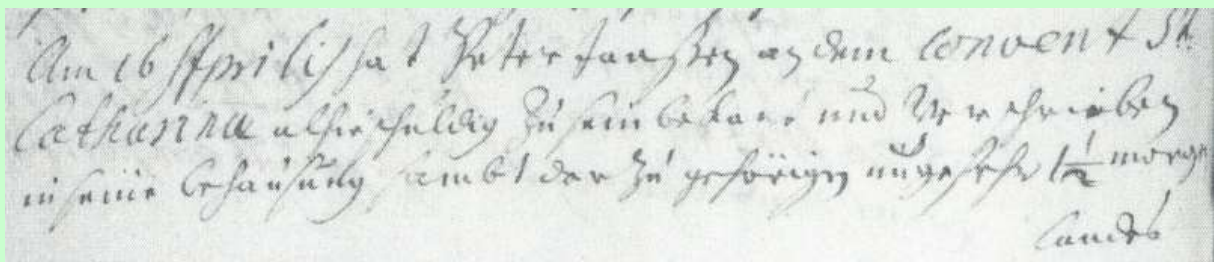 Am 16 Aprilis hat Peter Janßen an dem Convent St.
Catharina alhie schuldig zu sein bekant und Verschrieben
in seine behausung sambt der zu gehörigen ungefehr 1 1/2 morgen
Landes